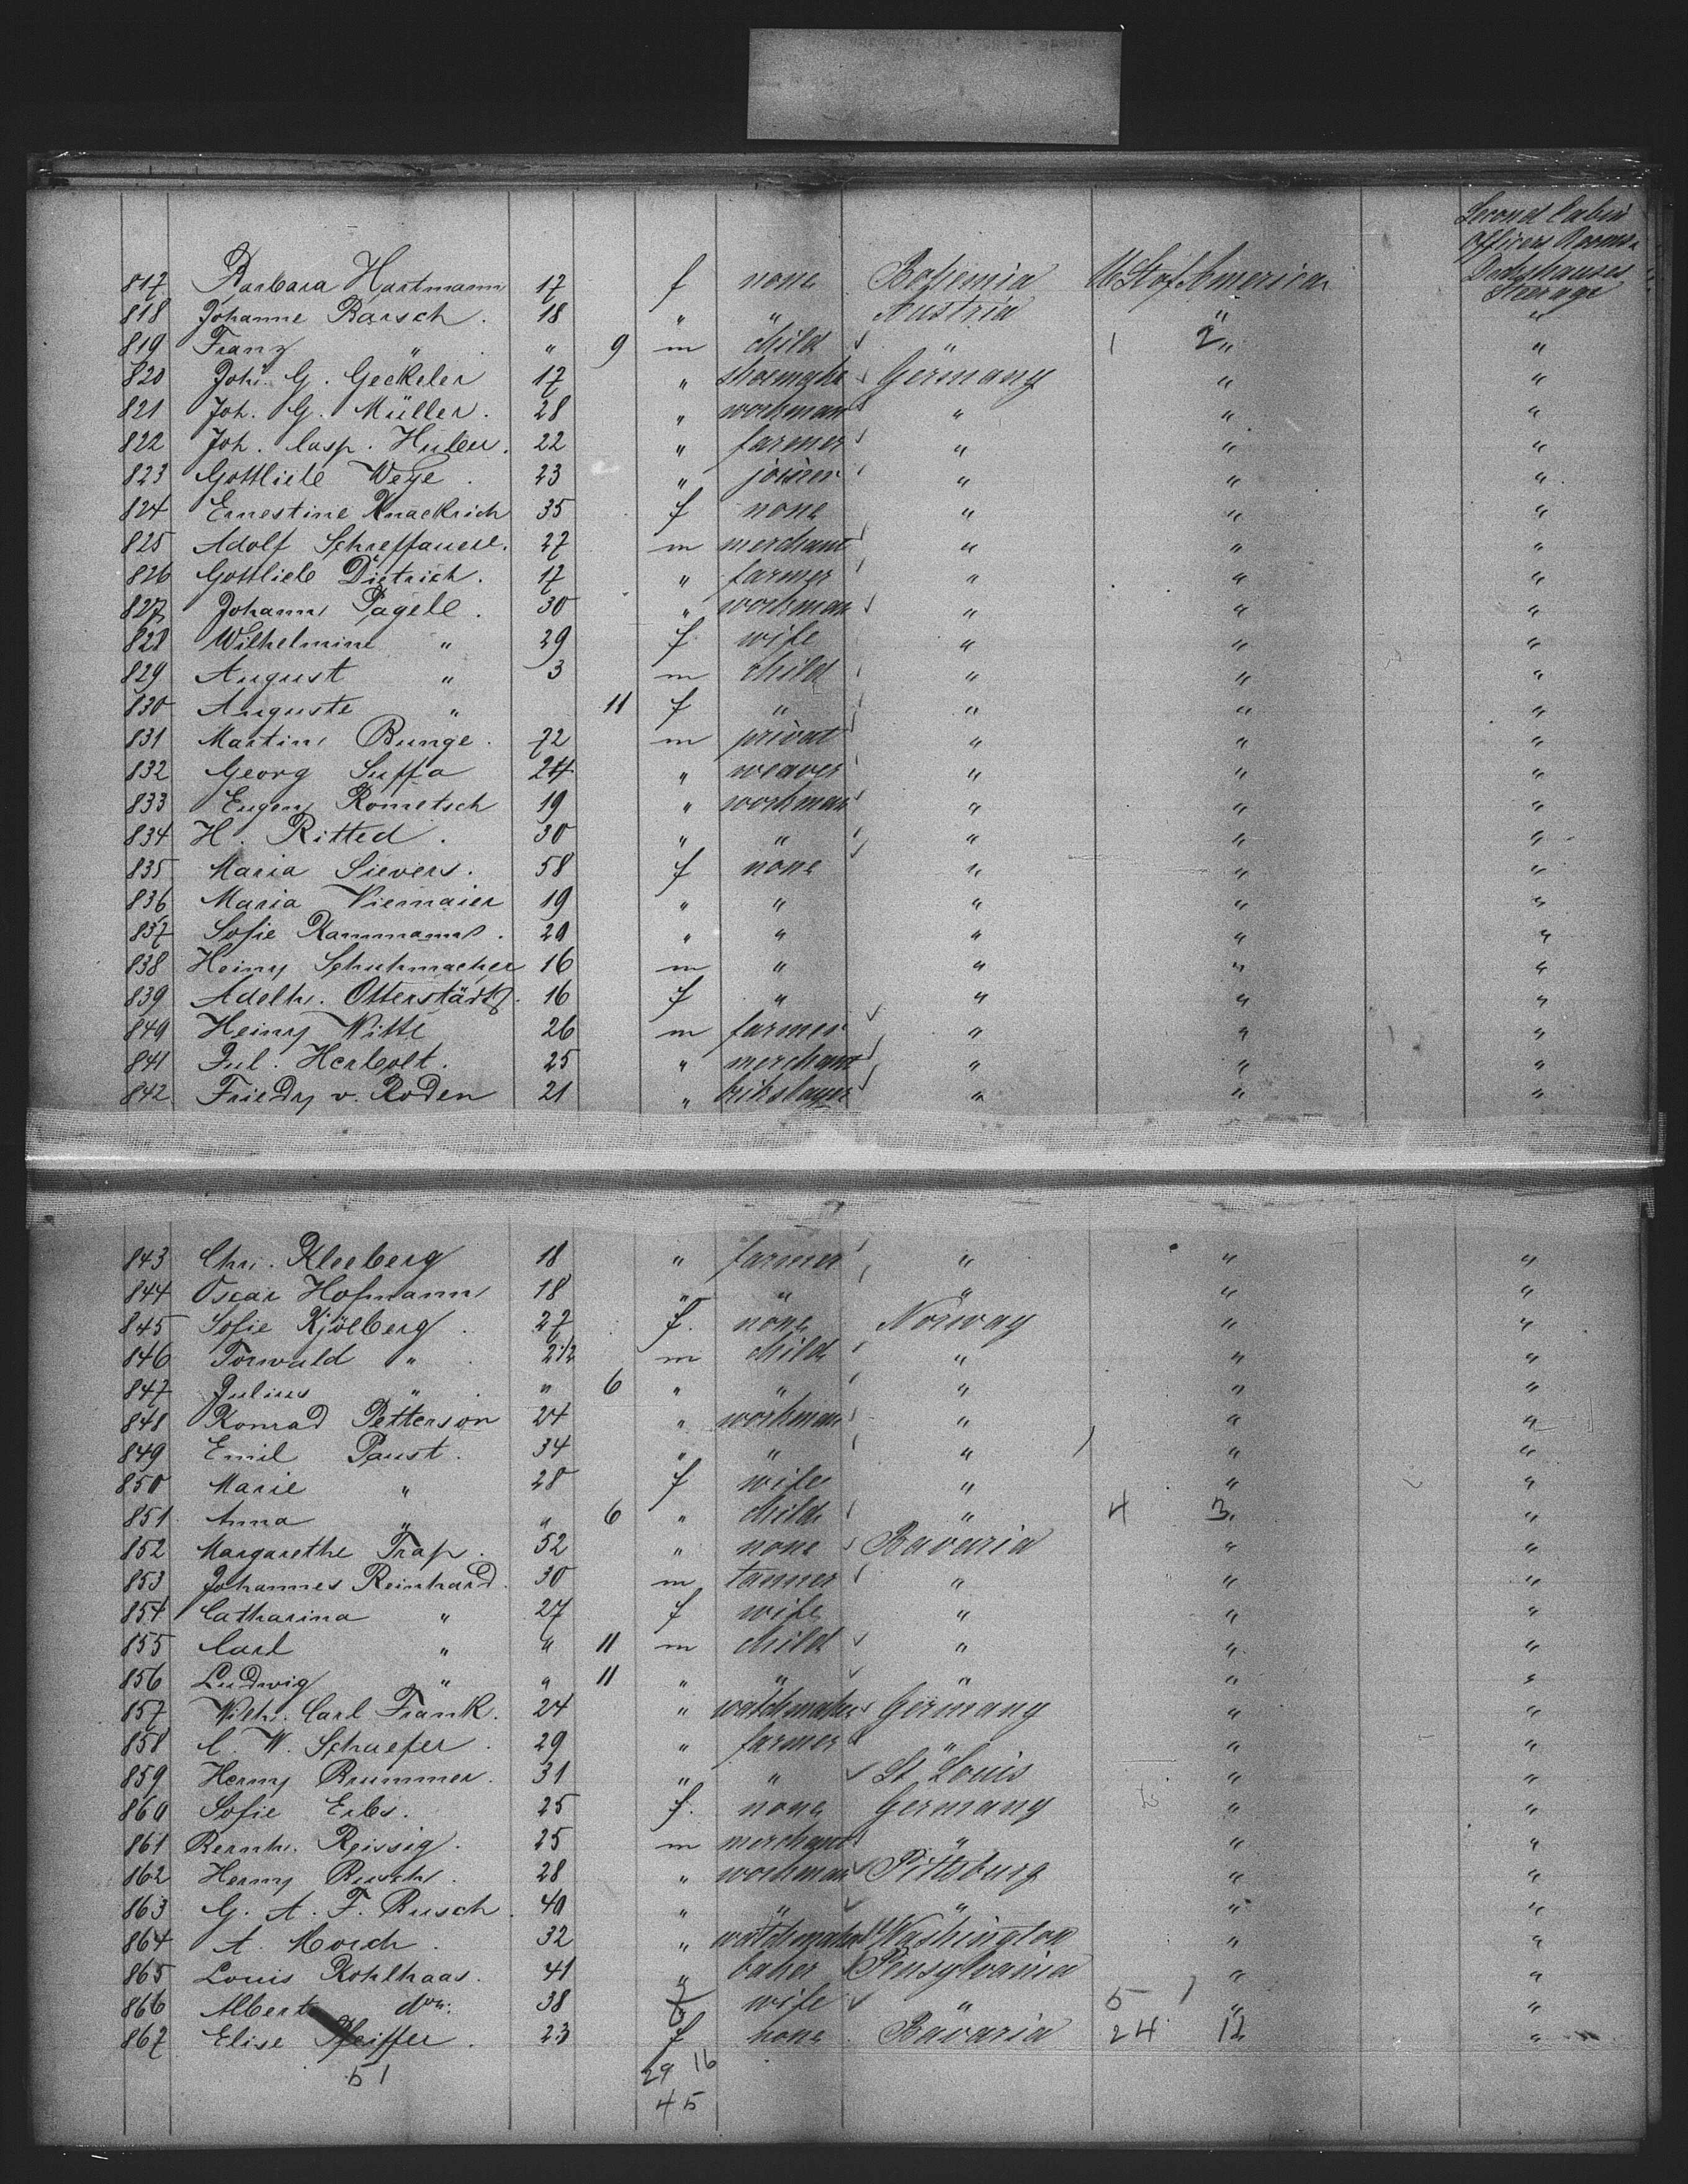 Second Cabin
Officers Rooms
Deckhouses
817 Barbara Hartmann 17 f none Bohemia U St of America Steerage
818 Johanne Barsch . 18 " " Austria " "
819 Franz " . " 9 m child " 1 2 " "
820 Joh. G. Geckeler 17 " shoemaker Germany " "
821 Joh. G. Müller . 28 " workman " " "
822 Joh. Casp. Huber . 22 " farmer " " "
823 Gottlieb Weye . 23 " joiner " " "
824 Ernestine Knackrich 35 f none " " "
825 Adolf 27 m merchant " " "
826 Gottlieb Dietrich . 17 " farmer " " "
827 Johann Pagele . 30 " workman " " "
828 Wilhelmine " 29 f wife " " "
829 August " 3 m child " " "
830 Auguste " 11 f " " " "
831 Martin Bunge . 72 m privat " " "
832 Georg Suffa 24 " weaver " " "
833 Eugen Rometsch 19 " workman " " "
834 H. Ritted . 30 " " " " "
835 Maria Sievers . 58 f none " " "
836 Maria Viemaier 19 " " " " "
837 Sofie Kammann . 20 " " " " "
838 Heinry Schuhmacher 16 m " " " "
839 Adelh. 16 f " " " "
840 Heinry Witte 26 m farmer " " "
841 Jul. Herbolt . 25 " merchant " " "
842 Friedr v. Roden 21 " " " "
843 Chr. Kleeberg 18 " farmer " " "
844 Oscar Hofmann 18 " " " " "
845 Sofie Kjölberg . 27 f. none Norway " "
846 Torwald " . 2 1/2 m child " " "
847 Julius " . " 6 " " " " "
848 Konrad Petterson 24 " workman " " "
849 Emil Paust . 34 " " " " "
850 Marie " 28 f wife " " "
851 Anna " " 6 " child " 4 3 "
852 Margarethe Trap . 52 " none Bavaria " "
853 Johannes Reinhard . 30 m tanner " " "
854 Catharina " 27 f wife " " "
855 Carl " " 11 m child " " "
856 Ludwig " " 11 " " " " "
857 Wilh. Carl Frank . 24 " watchmaker Germany " "
858 C. W. Schaefer . 29 " farmer " " "
859 Henry Brummer . 31 " " St Louis " "
860 Sofie Erbs . 25 f. none Germany " "
861 Bernh. Reissig . 25 m merchant " " "
862 Henry Busch . 28 " workman Pittsburg " "
863 G. A. F. Busch . 40 " " " " "
864 A. Morch . 32 " watchmaker Washington " "
865 Louis Kohlhaas . 41 " baker Pensylvania " "
866 Albert do. 38 f wife " 5 1 " "
867 Elise Pfeiffer . 23 f none . Bavaria 24 12 "
51 29 16
45